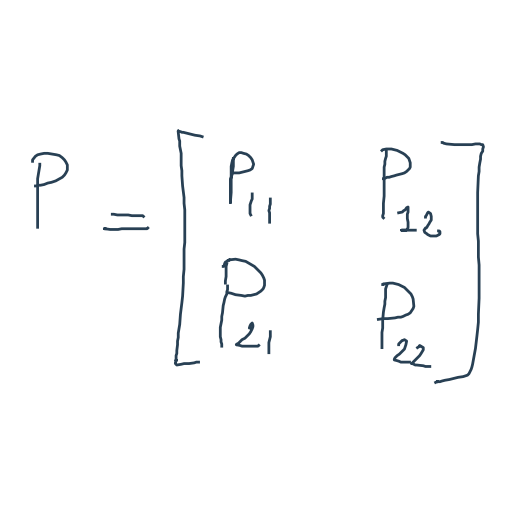 P = [ P₁₁ P₁₂
P₂₁ P₂₂ ]